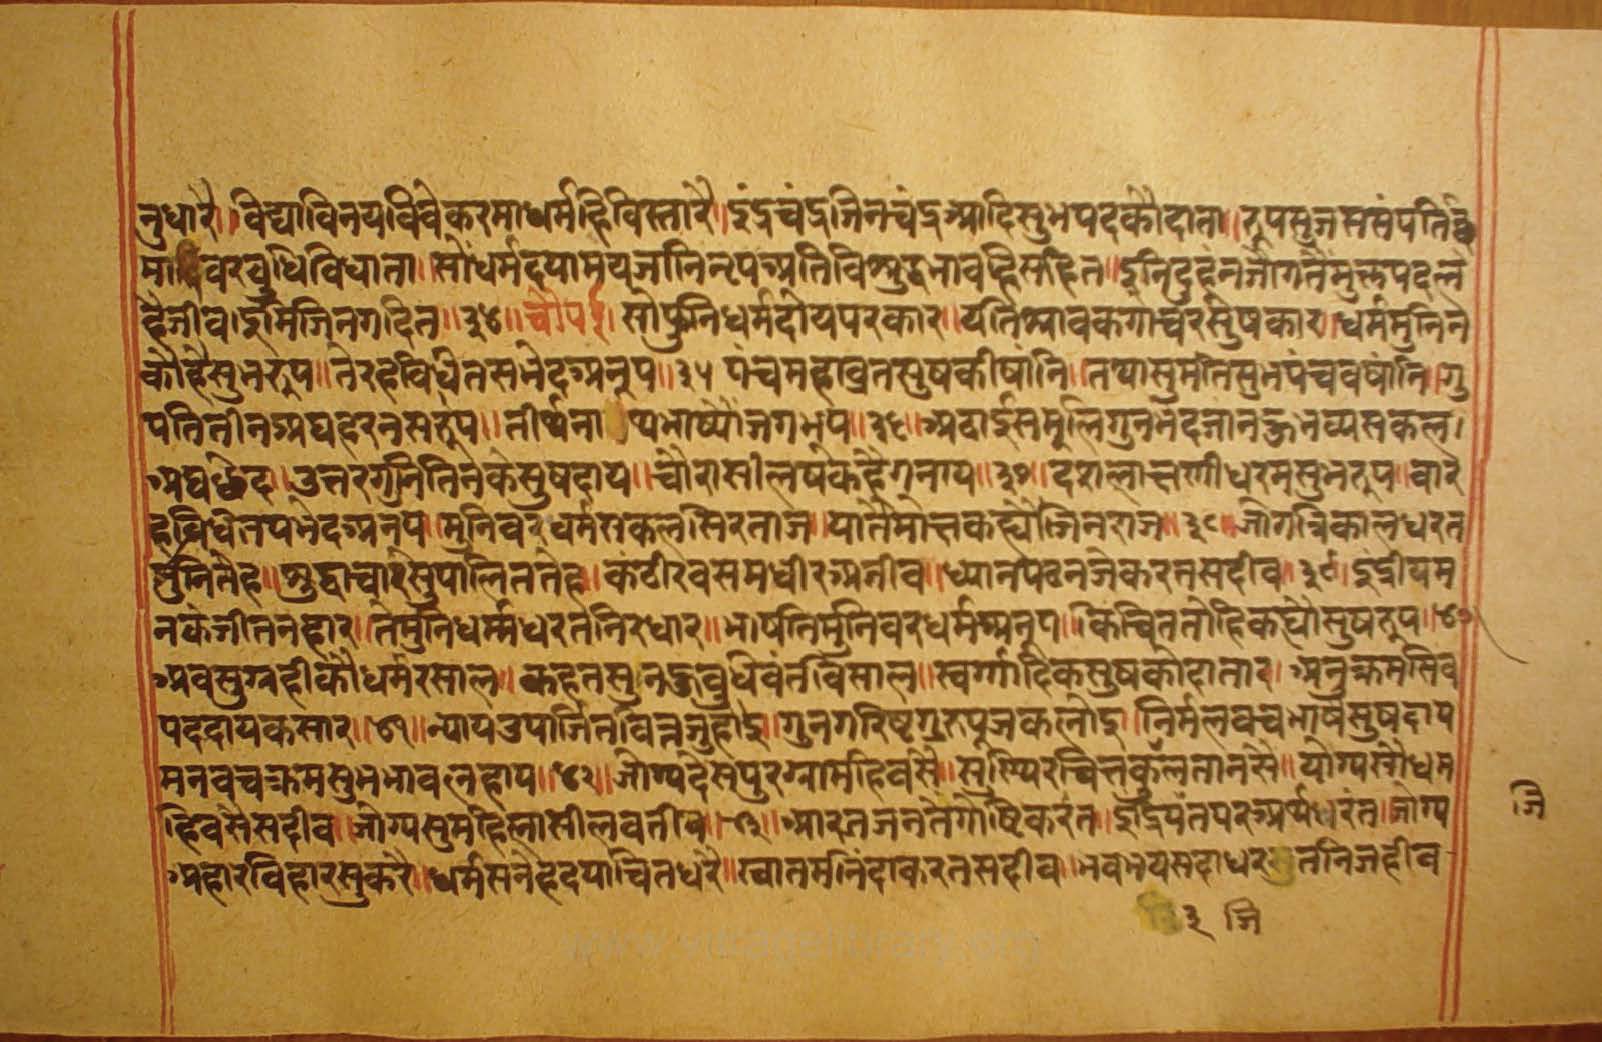 नुधारै॥ विद्याविनयविवेकरमाधर्महिविस्तारै॥ इंद्रचंद्रजिनचंद्रआदिसुभपदकौदाता॥ रूपसुजससंपति
मा वरवुधिविधाता॥ सोधर्मदयामयजांनिनृपअतिविशुद्धभावहिसहित॥ इनिदुहंनजोगतैमुक्तपदलं
हैजीव।इमिजिनगदित॥३४॥ चौपई। सोपुनिधर्मदोयपरकार॥ यतिश्रावकगोचरसुषकार॥ धर्ममुनिन
कौहैसुभरूप॥ तेरहविधितसभेदअनूप॥३५ पंचमहाव्रतसुषकीषांनि॥ तथासुमतिसुभपंचवषांनि॥ गु
पतितीनअघहरनसरूप॥ तीर्थना भाष्यौजगभूप॥३६॥ अठाईसमूलिगुनभेदजानऊभव्यसकल।
अघछेद॥ उत्तरगुनतिनकेसुषदाय॥ चौरासीलषकहैगनाय॥३७॥ दशलाक्षणीधरमसुभरूप॥ वार
हविधितपभेदअनूप॥ मुनिवरधर्मसकलसिरताज॥ यातैमोक्षकह्यौजिनराज॥३८॥ जोगत्रिकालधरत
मुनितेह॥ शुद्धाचारसुपालिततेह॥ कंठीरवसमधीरअतीव॥ ध्यानपठनजेकरतसदीव॥३९॥ इंद्रीयम
नकेजीतनहार॥ तेमुनिधर्मधरतनिरधार॥ भूपतिमुनिवरधर्मअनूप॥ किंचिततोहिकह्यौसुषरूप॥४०॥
अवसुग्रहीकौधर्मरसाल॥ कहतसुनऊवुधिवंतविसाल॥ स्वर्गादिकसुषकौदातार॥ अनुक्रमसिव
पददायकसार॥४१॥ न्यायउपार्जितवित्तजुहोइ॥ गुनगरिष्टगुरुपूजकलोइ॥ निर्मलवचभाषैसुषदाय
मनवचक्रमसुभभावलहाय॥४२॥ जोग्यदेसपुरग्रामहिवसै॥ सुस्थिरचित्तकुलनानसै॥ योग्यसौध
हिवसैसदीव॥ जोग्यसुमहिलासीलवतीव॥४३॥ आरतजनतेगोष्टिकरंत॥ इंद्रियंतपरअर्थधरंत॥ जोग्य
अहारविहारसुकरै॥ धर्मसनेहदयाचितधरै॥ स्वातमनिंदाकरतसदीव॥ भवभयसदाधर तनिजहीव
जि
३ जि
www.vitragelibrary.org